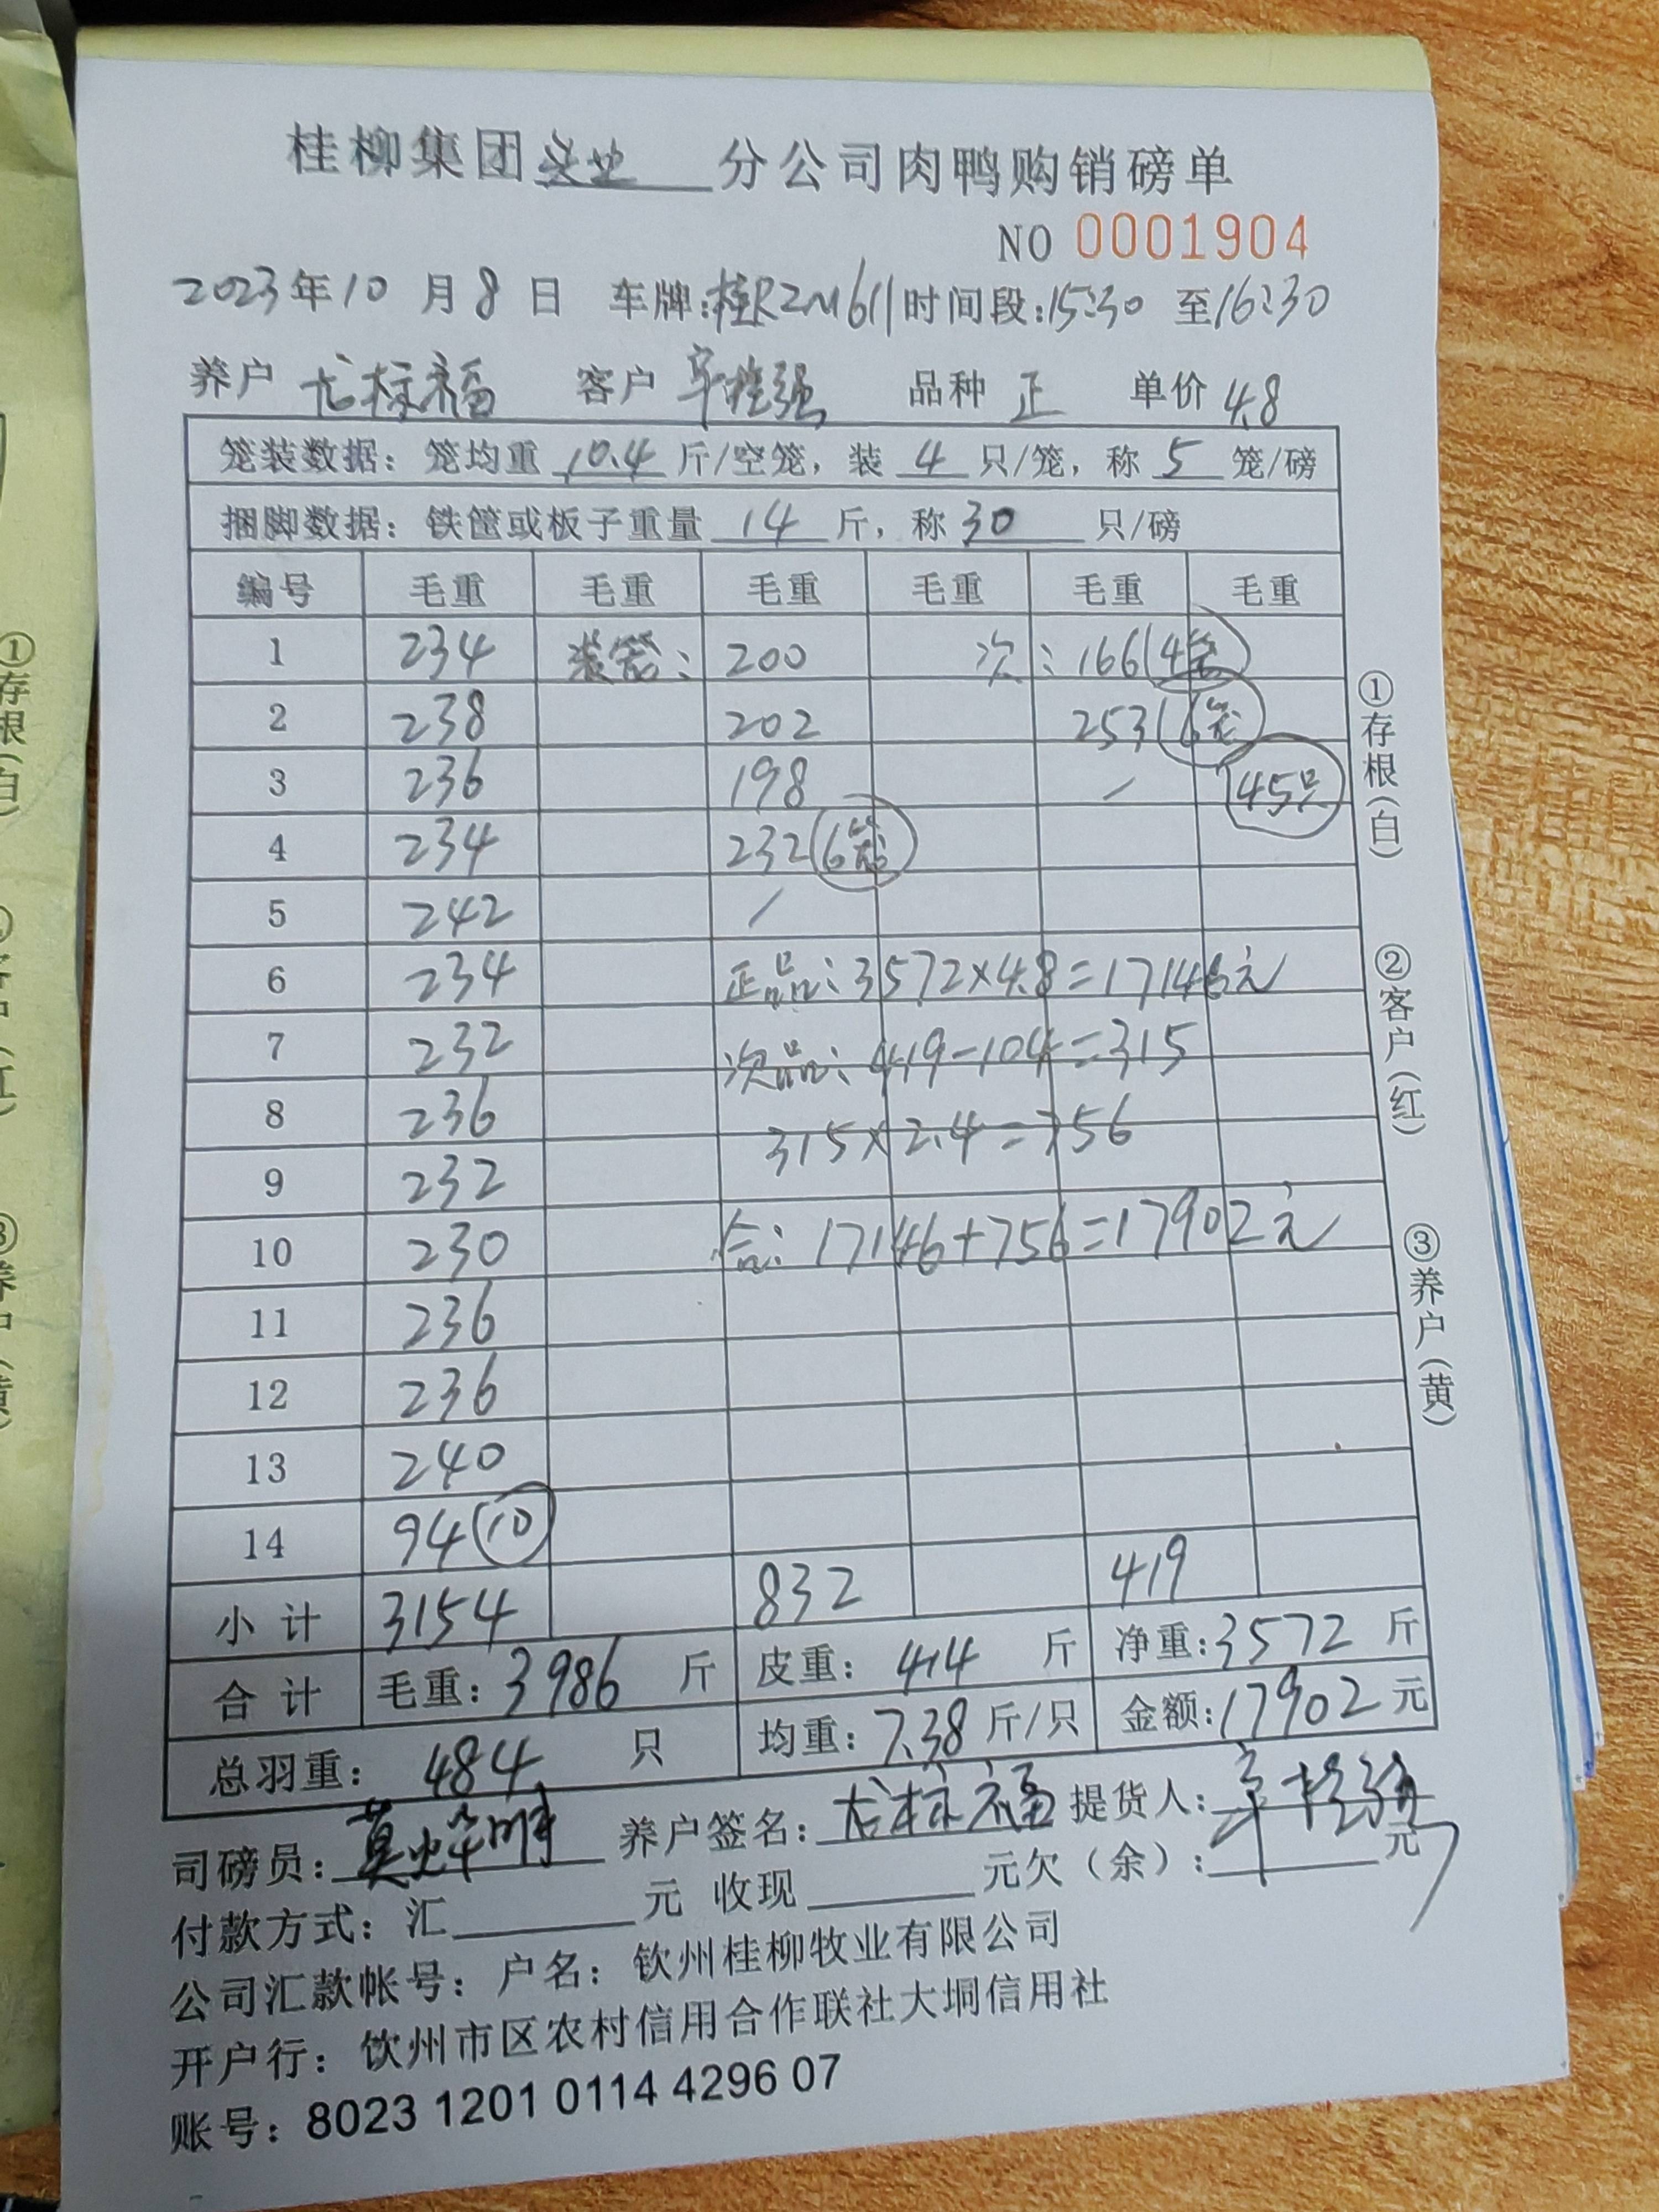 桂柳集团 分公司肉鸭购销磅单
NO 0001904
2023年10月8日 车牌:桂R2M611 时间段:15:30 至16:30
养户 龙标福 客户 辛桂强 品种 正 单价 4.8
笼装数据: 笼均重 10.4 斤/空笼, 装 4 只/笼, 称 5 笼/磅
捆脚数据: 铁筐或板子重量 14 斤, 称 30 只/磅
编号 毛重 毛重 毛重 毛重 毛重 毛重
1 234 装笼: 200 次: 166 (4笼)
2 238 202 253 (6笼)
3 236 198 / (45只)
4 234 232 (6笼)
5 242 /
6 234 正品: 3572×4.8=17146元
7 232 次品: 419-104=315
8 236 315×2.4=756
9 232
10 230 合: 17146+756=17902元
11 236
12 236
13 240
14 94 (10)
小计 3154 832 419
合计 毛重: 3986 斤 皮重: 414 斤 净重: 3572 斤
总羽重: 484 只 均重: 7.38 斤/只 金额: 17902 元
司磅员: 养户签名: 龙标福 提货人: 辛桂强
付款方式: 汇 元 收现 元欠(余): 元
公司汇款帐号: 户名: 钦州桂柳牧业有限公司
开户行: 钦州市区农村信用合作联社大垌信用社
账号: 8023 1201 0114 4296 07
①存根(白)
②客户(红)
③养户(黄)
①存根(白)